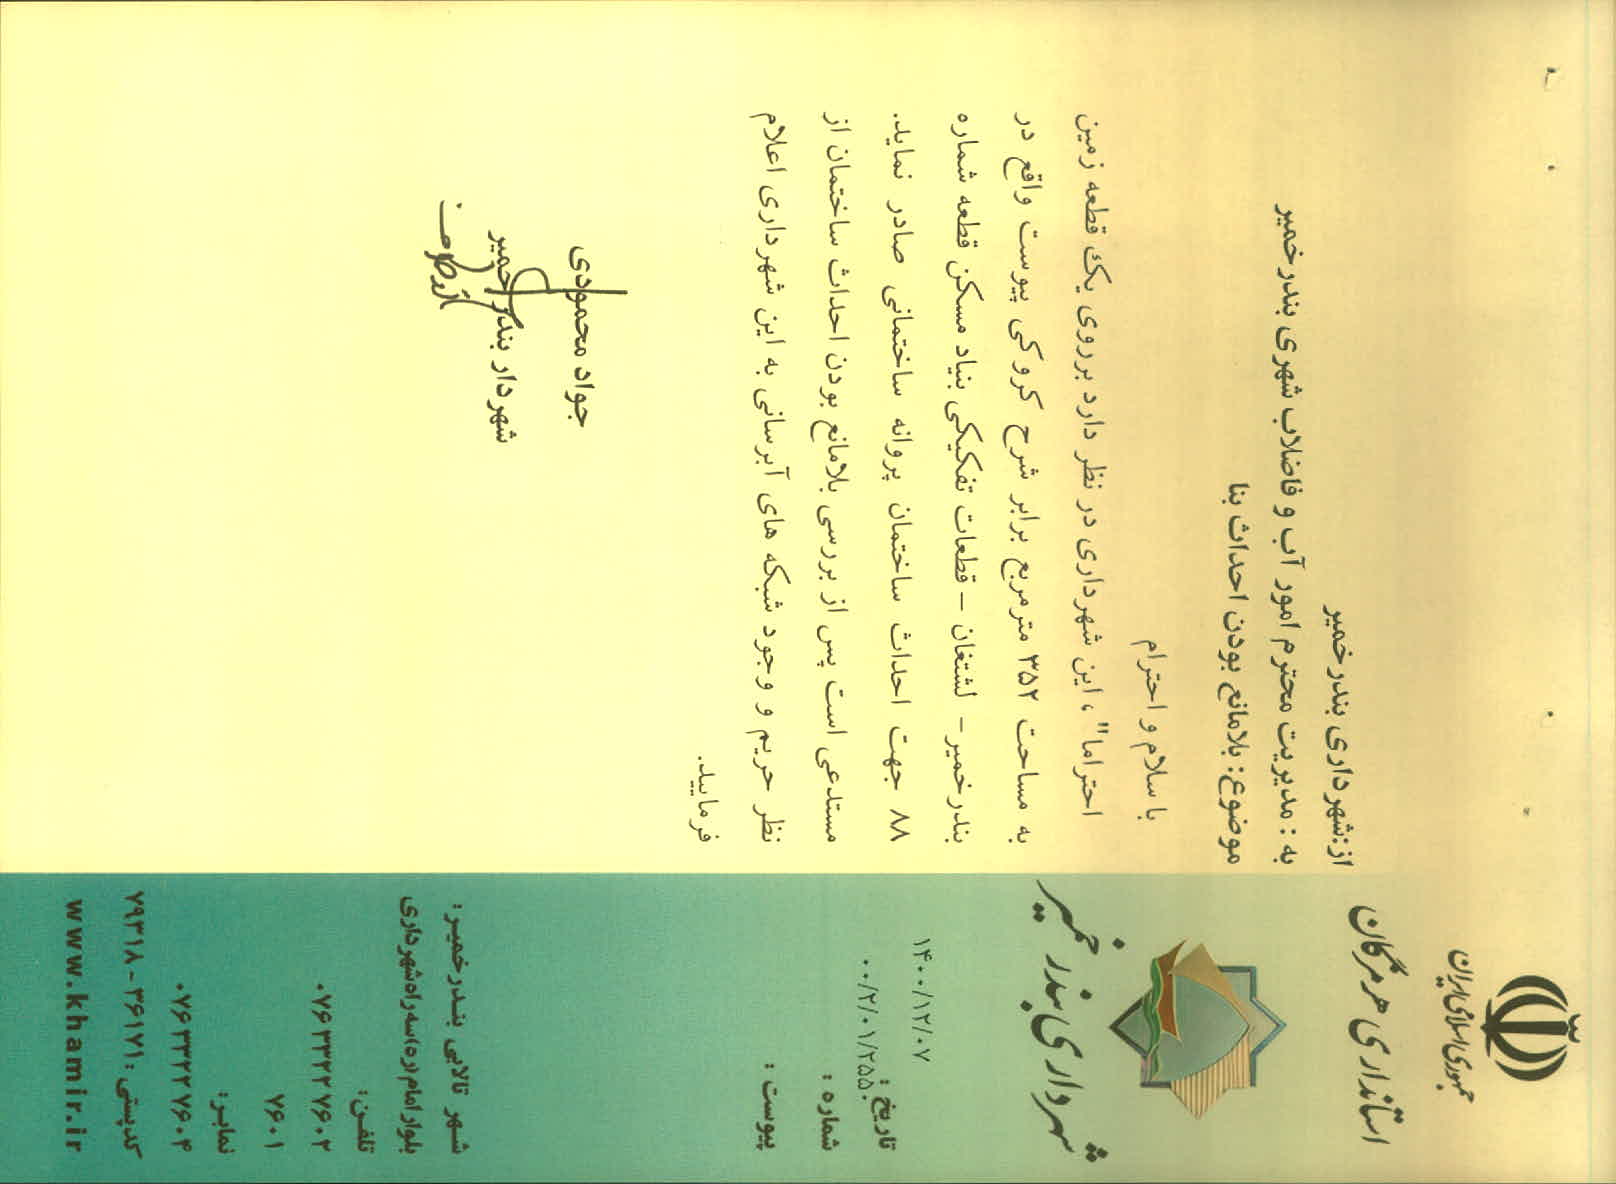 جمهوری اسلامی ایران
استانداری هرمزگان
شهرداری بندر خمیر
۱۴۰۰/۱۲/۰۷
تاریخ :
۰۰/۲/۰۱/۲۵۵۰
شماره :
پیوست :
از:شهرداری بندرخمیر
به : مدیریت محترم امور آب و فاضلاب شهری بندرخمیر
موضوع: بلامانع بودن احداث بنا
با سلام و احترام
احتراما" ، این شهرداری در نظر دارد برروی یک قطعه زمین
به مساحت ۳۵۲ مترمربع برابر شرح کروکی پیوست واقع در
بندرخمیر- لشتغان – قطعات تفکیکی بنیاد مسکن قطعه شماره
۸۸ جهت احداث ساختمان پروانه ساختمانی صادر نماید.
مستدعی است پس از بررسی بلامانع بودن احداث ساختمان از
نظر حریم و وجود شبکه های آبرسانی به این شهرداری اعلام
فرمایید.
جواد محمودی
شهردار بندرخمیر
شهر تالابی بندرخمیر :
بلوار امام (ره)سه راه شهرداری
تلفن:
۰۷۶۳۳۲۲۷۶۰۲
۷۶۰۱
نمابر:
۰۷۶۳۳۲۲۷۶۰۴
کدپستی : ۳۶۱۷۱ - ۷۹۳۱۸
www.khamir.ir